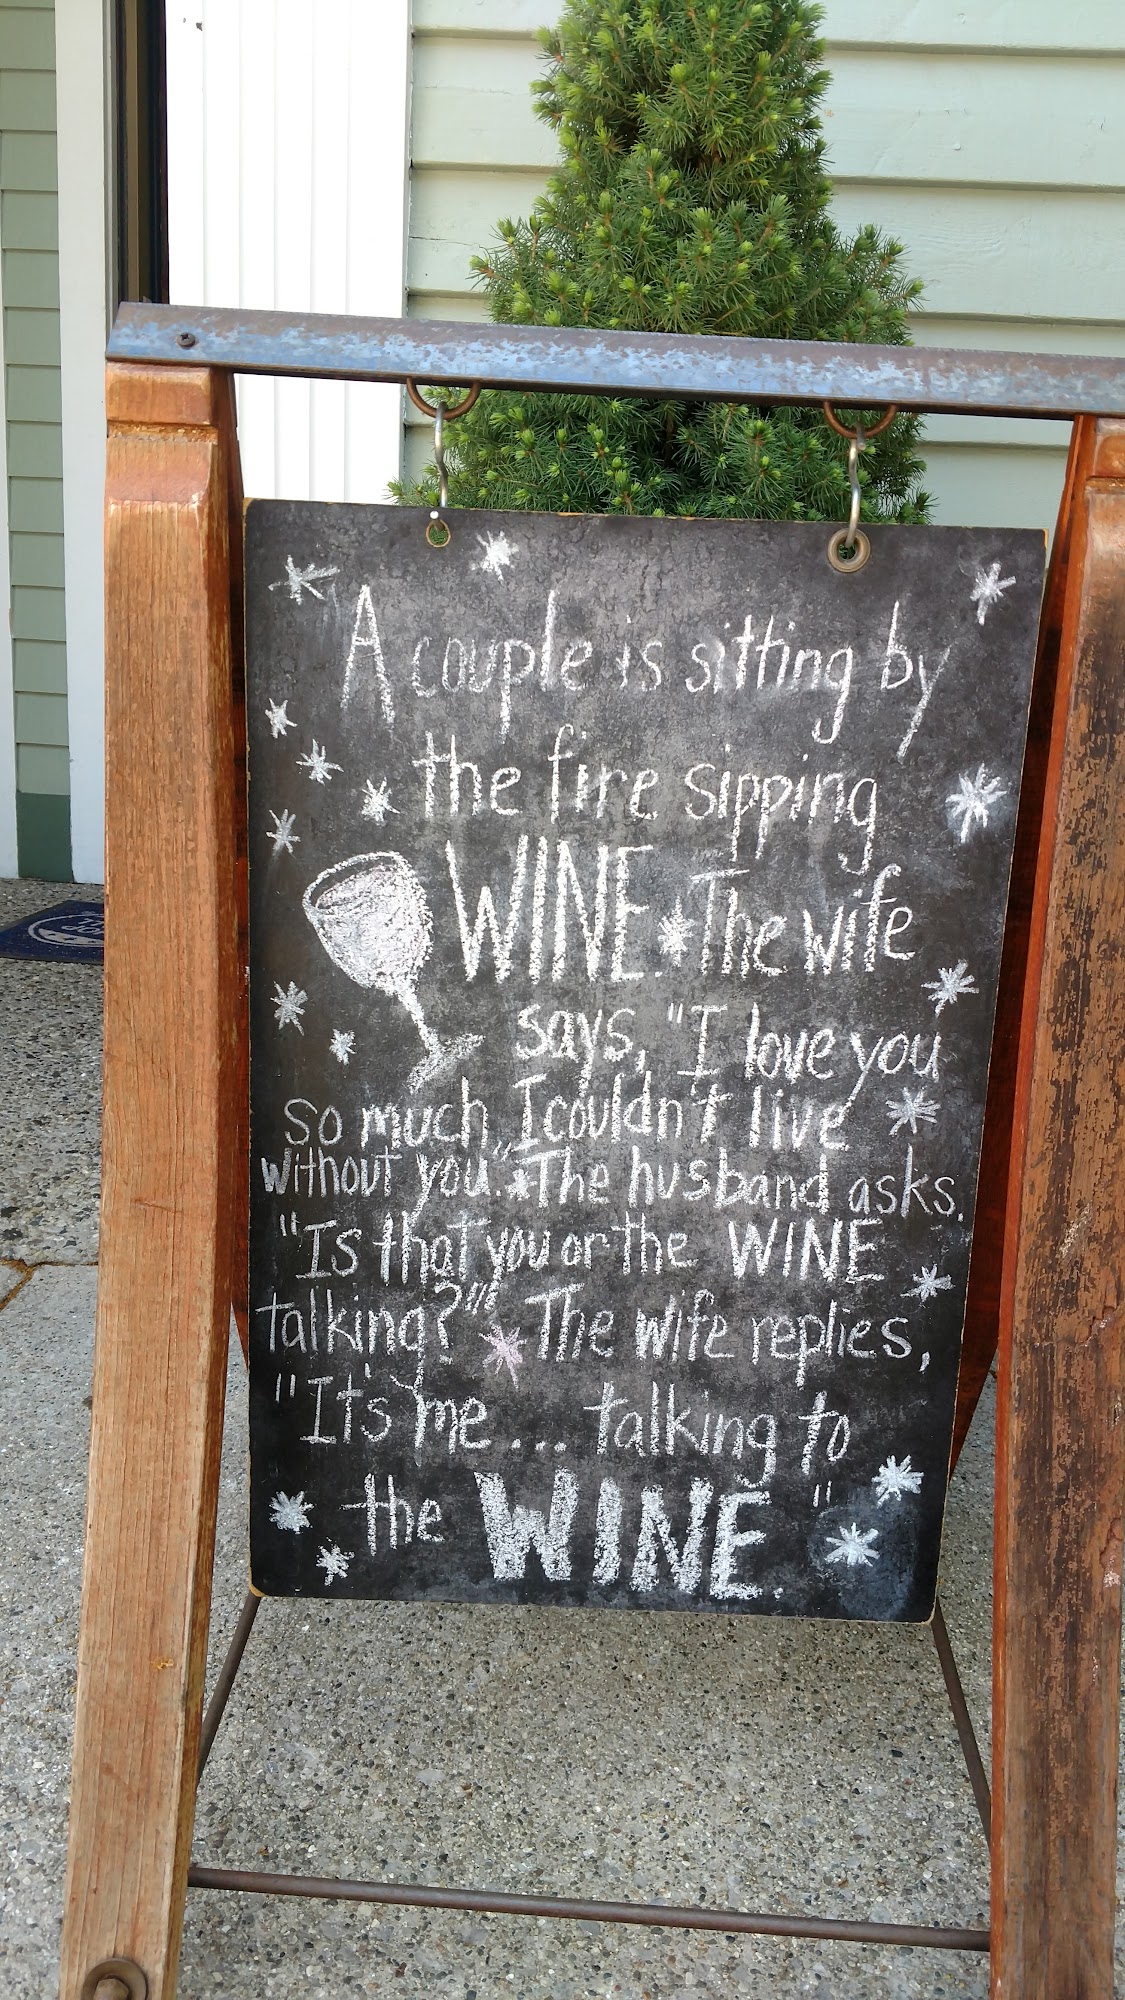 A couple is sitting by
the fire sipping
WINE. The wife
says, "I love you
so much, I couldn't live
without you." The husband asks,
"Is that you or the WINE
talking?" The wife replies,
"It's me... talking to
the WINE."